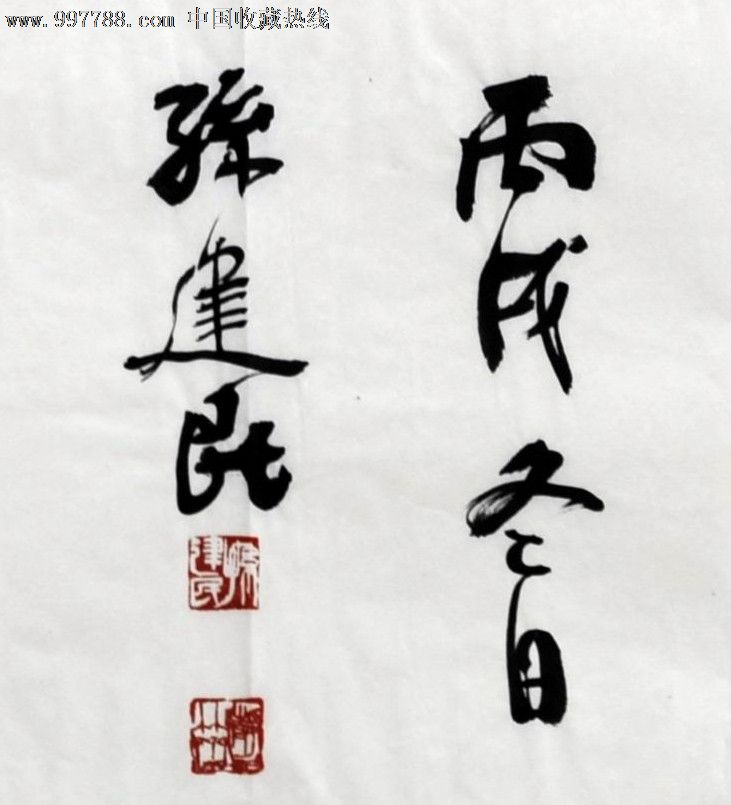 www.997788.com 中国收藏热线
丙戌冬日
孫建民